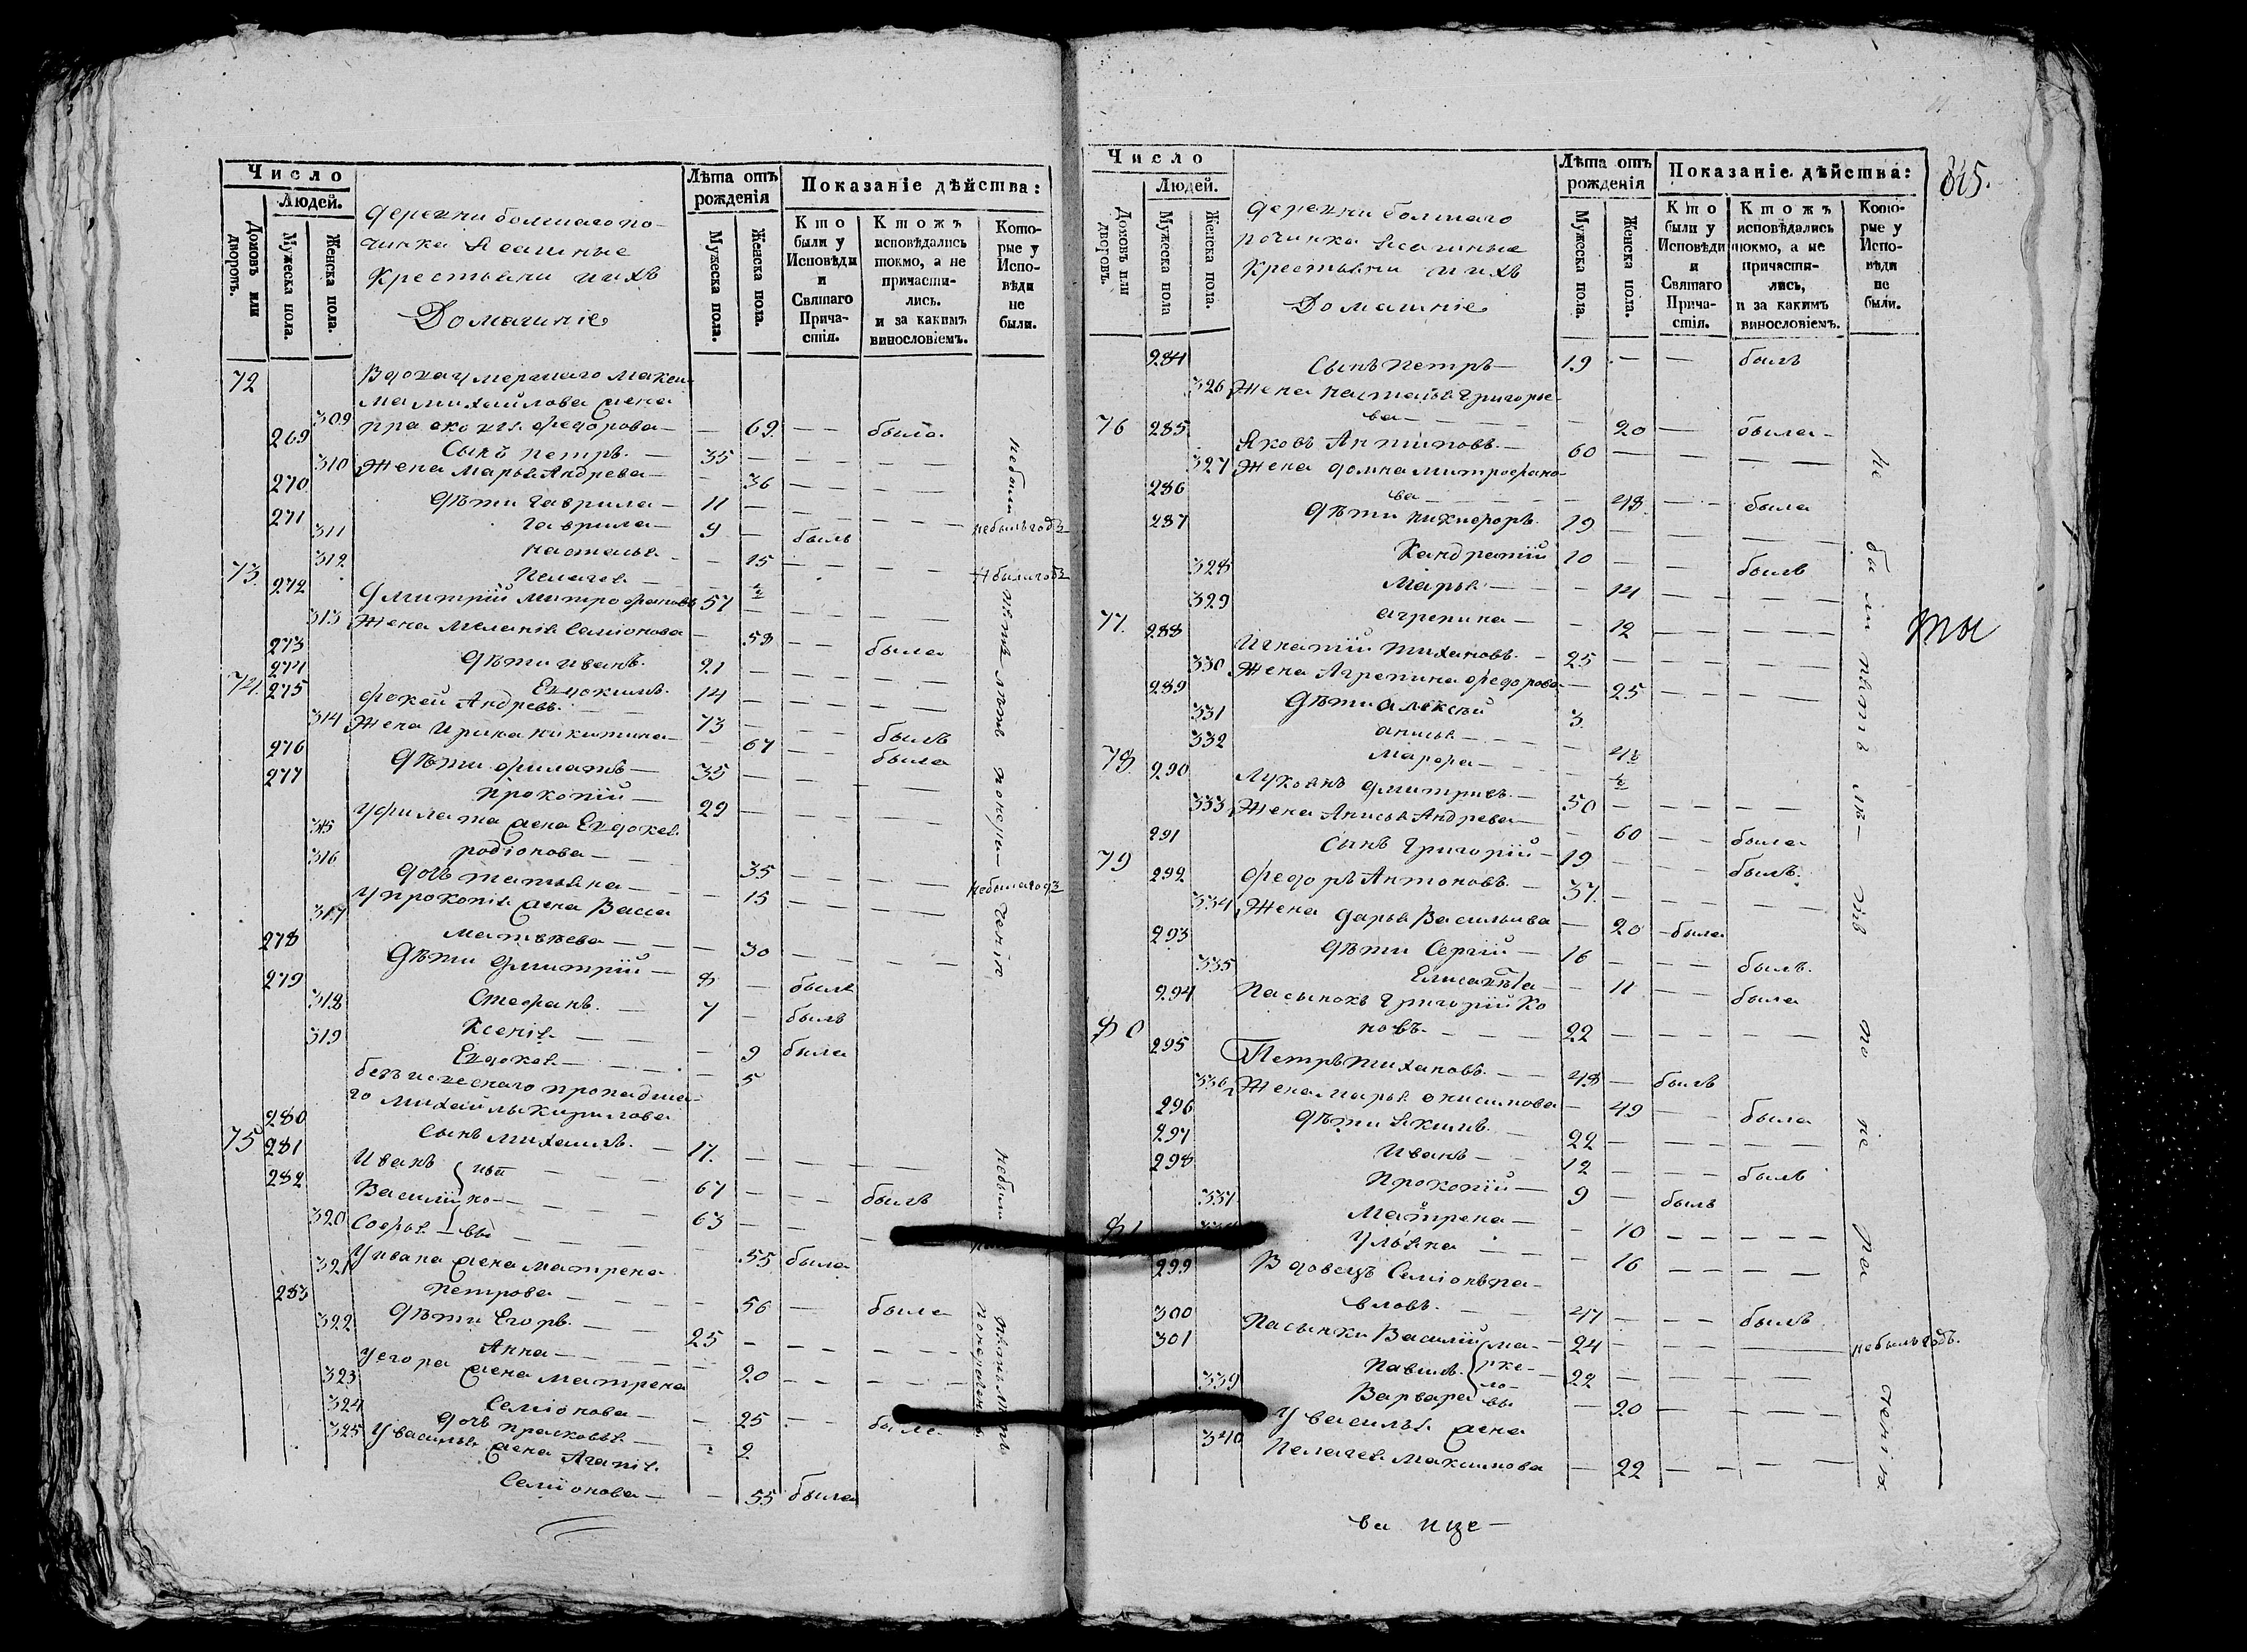 Число
Людей.
Домовъ или дворовъ.
Мужеска пола.
Женска пола.
деревни болшаго по-
чинка Ясашные
Крестьяни и ихъ
Домашніе
Лѣта отъ рожденія
Мужеска пола.
Женска пола.
Показаніе дѣйства:
Кто были у Исповѣди и Святаго Причастія.
Ктожъ исповѣдались токмо, а не причастились. и за какимъ винословіемъ.
Которые у Исповѣди не были.
72 Вдова умершаго Макси-
ма михайлова жена
309 прасковья федорова — — 69 — — была
269 Сынъ петръ — 35 — — — — —
310 Жена Марья Андреева — — 36 — — — —
270 дѣти гаврила — 11 — — — — —
271 гаврила — 9 — былъ
311 наталья — — 15 — — — —
312 Пелагея — —
73 272 Дмитрій Митрофановъ 57 — — — — —
313 Жена Меланія Семіонова — 58 — — была
273 дѣти иванъ. 21 — — — — —
274 Евдокимъ. 14 — — — — —
74. 275 фокей Андреевъ. 73 — — — былъ
314 Жена Ирина никитина — — 67 — — была
276 дѣти филатъ — 35 — — — —
277 прокопій — 29 — — — — —
315 У филата жена Евдокея
родіонова — — 35 — — — —
316 дочь татьяна — — 15 — — — —
317 У прокопія жена Васса
матвѣева — — — 30 — — — —
278 Дѣти Дмитрій — 8 — былъ
279 Стефанъ. — 7 — былъ
318 Ксенія — — — 9 была
319 Евдокея — — — 5
безъ извеснаго пропадша-
го михайлы кирилова
280 сынъ михаилъ. — 17. — — — — —
75 281 Иванъ 67 — — — былъ
282 Василій 63 — —
320 Софья 55 была
321 У ивана жена матрена
петрова — — — — 56 — была
283 дѣти Егоръ. — — 25 — — — — —
322 Анна — — — 20 — — — —
323 У егора жена матрена
Семіонова — — 25 — — была
324 дочь прасковья. — — 2
325 У василья жена Агапія
Семіонова — — 55 была
небылъ годъ
небыла годъ

Число
Людей.
Домовъ или дворовъ.
Мужеска пола
Женска пола.
деревни болшаго
починка Ясашные
крестьяни и ихъ
Домашніе
Лѣта отъ рожденія
Мужеска пола.
Женска пола.
Показаніе дѣйства:
Кто были у Исповѣди и Святаго Причастія.
Ктожъ исповѣдались токмо, а не причастились, и за какимъ винословіемъ.
Которые у Исповѣди не были.
845.
284 Сынъ петръ — 19 — — былъ
326 Жена наталья Григорье-
ва — — — — — 20 — была —
76 285 Яковъ Антиповъ. — 60 — — — —
327 Жена домна митрофано-
ва — — — — — 48 — — была
286 дѣти никифоръ. 19 — — — —
287 Кандратій 10 — — былъ
328 Марья — — — 14 — — — —
329 агрепина — — 12 — — — —
77. 288 Игнатій тихановъ. — 25 — — — — —
330 Жена Агрепина федорова — 25 — — — —
289 Дѣти алексѣй 3
331 анисья — — —
332 Марфа — — —
78 290 Лукьянъ дмитріевъ. — 50 — — — — —
333 Жена Анисья Андреева — — 60 — — была
291 сынъ Григорій — 19 — — — былъ.
79 292 федоръ Антоновъ. — 37. — — — — —
334 Жена дарья Васильива — 20 — была
293 дѣти Сергій — 16 — — — былъ.
335 Елисавета — — 11 — — была
294 пасынокъ Григорій Ко
новъ. — — — 22 — — — — —
80 295 Петръ тихановъ. — — 48 — былъ
336 Жена марья онисимова — 49 — — была
296 дѣти якимъ. — 22 — — — — —
297 иванъ — — 12 — — — былъ
298 Прокопій — 9 — былъ
337 Матрена — — 10 — — — — —
Ульяна — — 16 — — — —
81 299 Вдовецъ Семіонъ па-
вловъ. — — 47 — — — былъ
300 пасынки Василій — 24 — — — небылъ годъ.
301 павилъ. 22 — — — —
339 Варвара — 20 — — — —
У василья жена
340 Пелагея Максимова — 22 — — — —
не были
ты